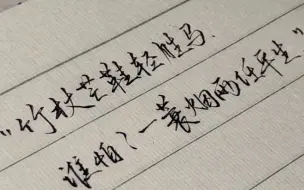 "竹杖芒鞋轻胜马.
谁怕?一蓑烟雨任平生"